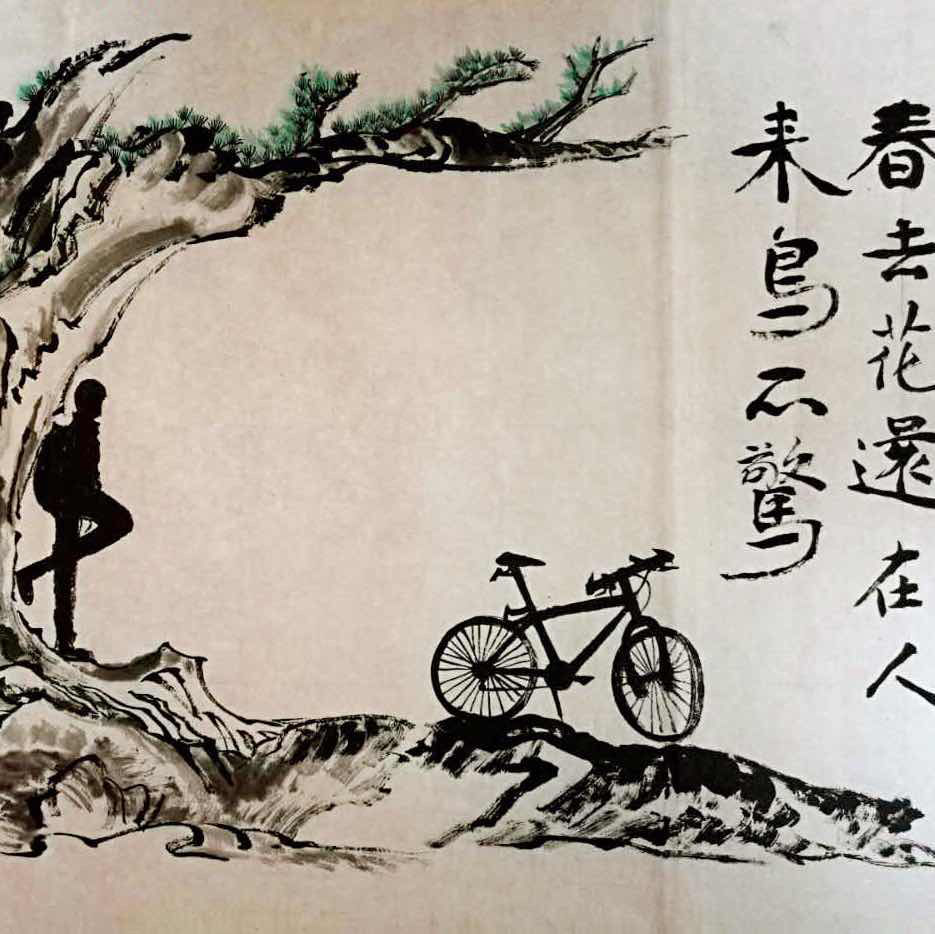 春去花還在人
来鳥不驚